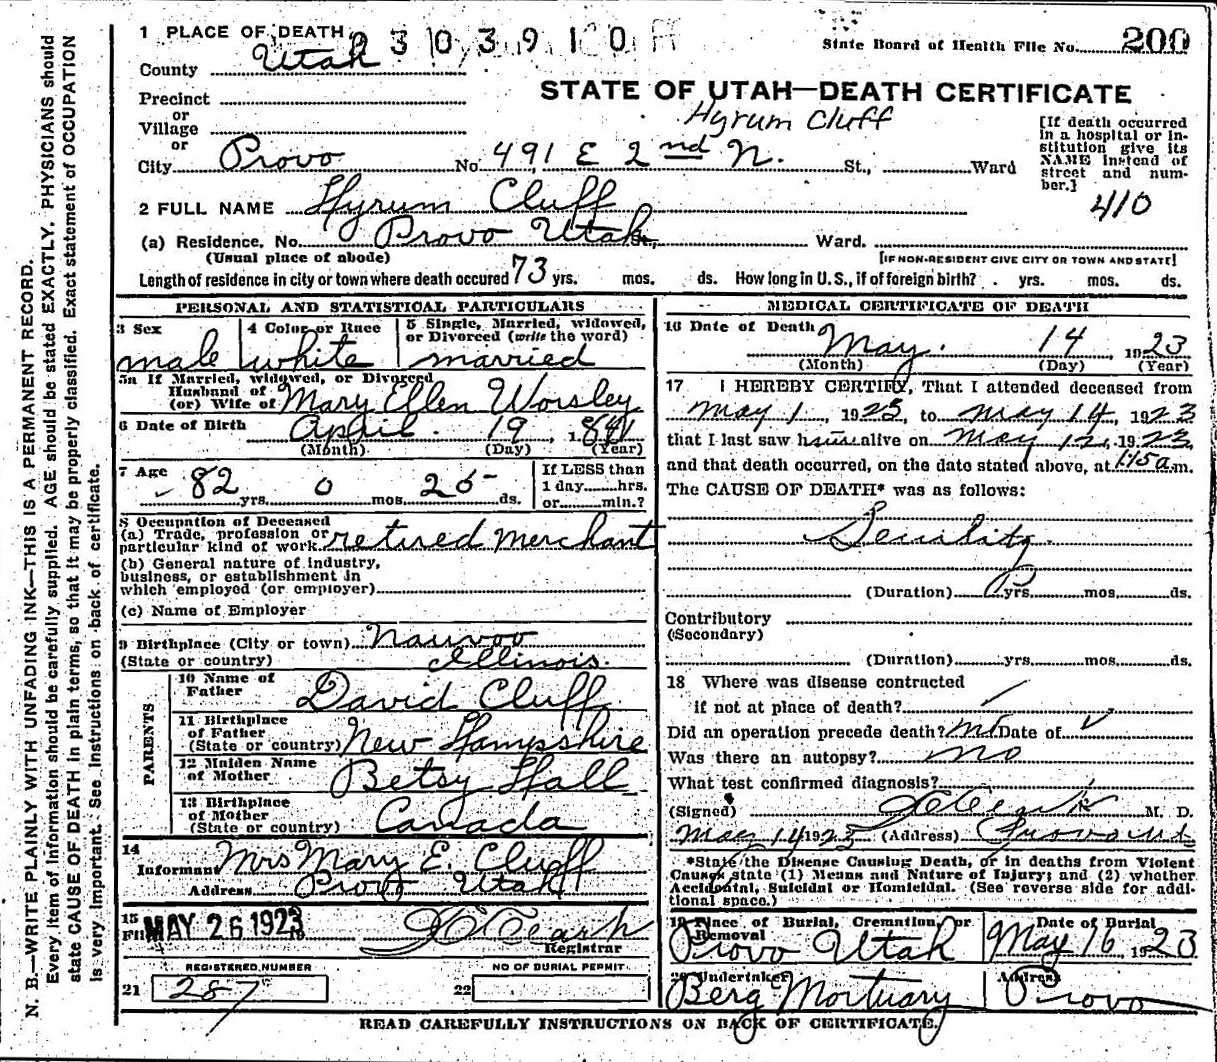 1 PLACE OF DEATH 2303910 State Board of Health File No. 200
County Utah
Precinct
or
Village
or
City Provo No. 491 E 2nd N. St., Ward
STATE OF UTAH—DEATH CERTIFICATE
Hyrum Cluff
[If death occurred
in a hospital or in-
stitution give its
NAME instead of
street and num-
ber.]
410
2 FULL NAME Hyrum Cluff
(a) Residence. No. Provo Utah St., Ward.
(Usual place of abode) [IF NON-RESIDENT GIVE CITY OR TOWN AND STATE]
Length of residence in city or town where death occured 73 yrs. mos. ds. How long in U.S., if of foreign birth? yrs. mos. ds.
PERSONAL AND STATISTICAL PARTICULARS
3 Sex
male
4 Color or Race
white
5 Single, Married, widowed,
or Divorced (write the word)
married
5a If Married, widowed, or Divorced
Husband of
(or) Wife of Mary Ellen Worsley
6 Date of Birth April 19, 1841
(Month) (Day) (Year)
7 Age
82 yrs. 0 mos. 25 ds.
If LESS than
1 day hrs.
or min.?
8 Occupation of Deceased
(a) Trade, profession or
particular kind of work retired merchant
(b) General nature of industry,
business, or establishment in
which employed (or employer)
(c) Name of Employer
9 Birthplace (City or town) Nauvoo
(State or country) Illinois.
PARENTS
10 Name of
Father David Cluff
11 Birthplace
of Father
(State or country) New Hampshire
12 Maiden Name
of Mother Betsy Hall
13 Birthplace
of Mother
(State or country) Canada
14
Informant Mrs Mary E. Cluff
Address Provo Utah
15
Filed MAY 26 1923
Registrar
REGISTERED NUMBER
21 287
NO OF BURIAL PERMIT
22
MEDICAL CERTIFICATE OF DEATH
16 Date of Death May 14, 1923
(Month) (Day) (Year)
17 I HEREBY CERTIFY, That I attended deceased from
May 1, 1923, to May 14, 1923
that I last saw him alive on May 12, 1923,
and that death occurred, on the date stated above, at 1:15 a.m.
The CAUSE OF DEATH* was as follows:
Senility
(Duration) yrs. mos. ds.
Contributory
(Secondary)
(Duration) yrs. mos. ds.
18 Where was disease contracted
if not at place of death?
Did an operation precede death? no Date of
Was there an autopsy? no
What test confirmed diagnosis?
(Signed) M. D.
May 14 1923 (Address) Provo Ut
*State the Disease Causing Death, or in deaths from Violent
Causes state (1) Means and Nature of Injury; and (2) whether
Accidental, Suicidal or Homicidal. (See reverse side for addi-
tional space.)
19 Place of Burial, Cremation, or
Removal
Provo Utah
Date of Burial
May 16 1923
20 Undertaker
Berg Mortuary
Address
Provo
READ CAREFULLY INSTRUCTIONS ON BACK OF CERTIFICATE.
N. B.—WRITE PLAINLY WITH UNFADING INK—THIS IS A PERMANENT RECORD.
Every item of information should be carefully supplied. AGE should be stated EXACTLY. PHYSICIANS should
state CAUSE OF DEATH in plain terms, so that it may be properly classified. Exact statement of OCCUPATION
is very important. See instructions on back of certificate.